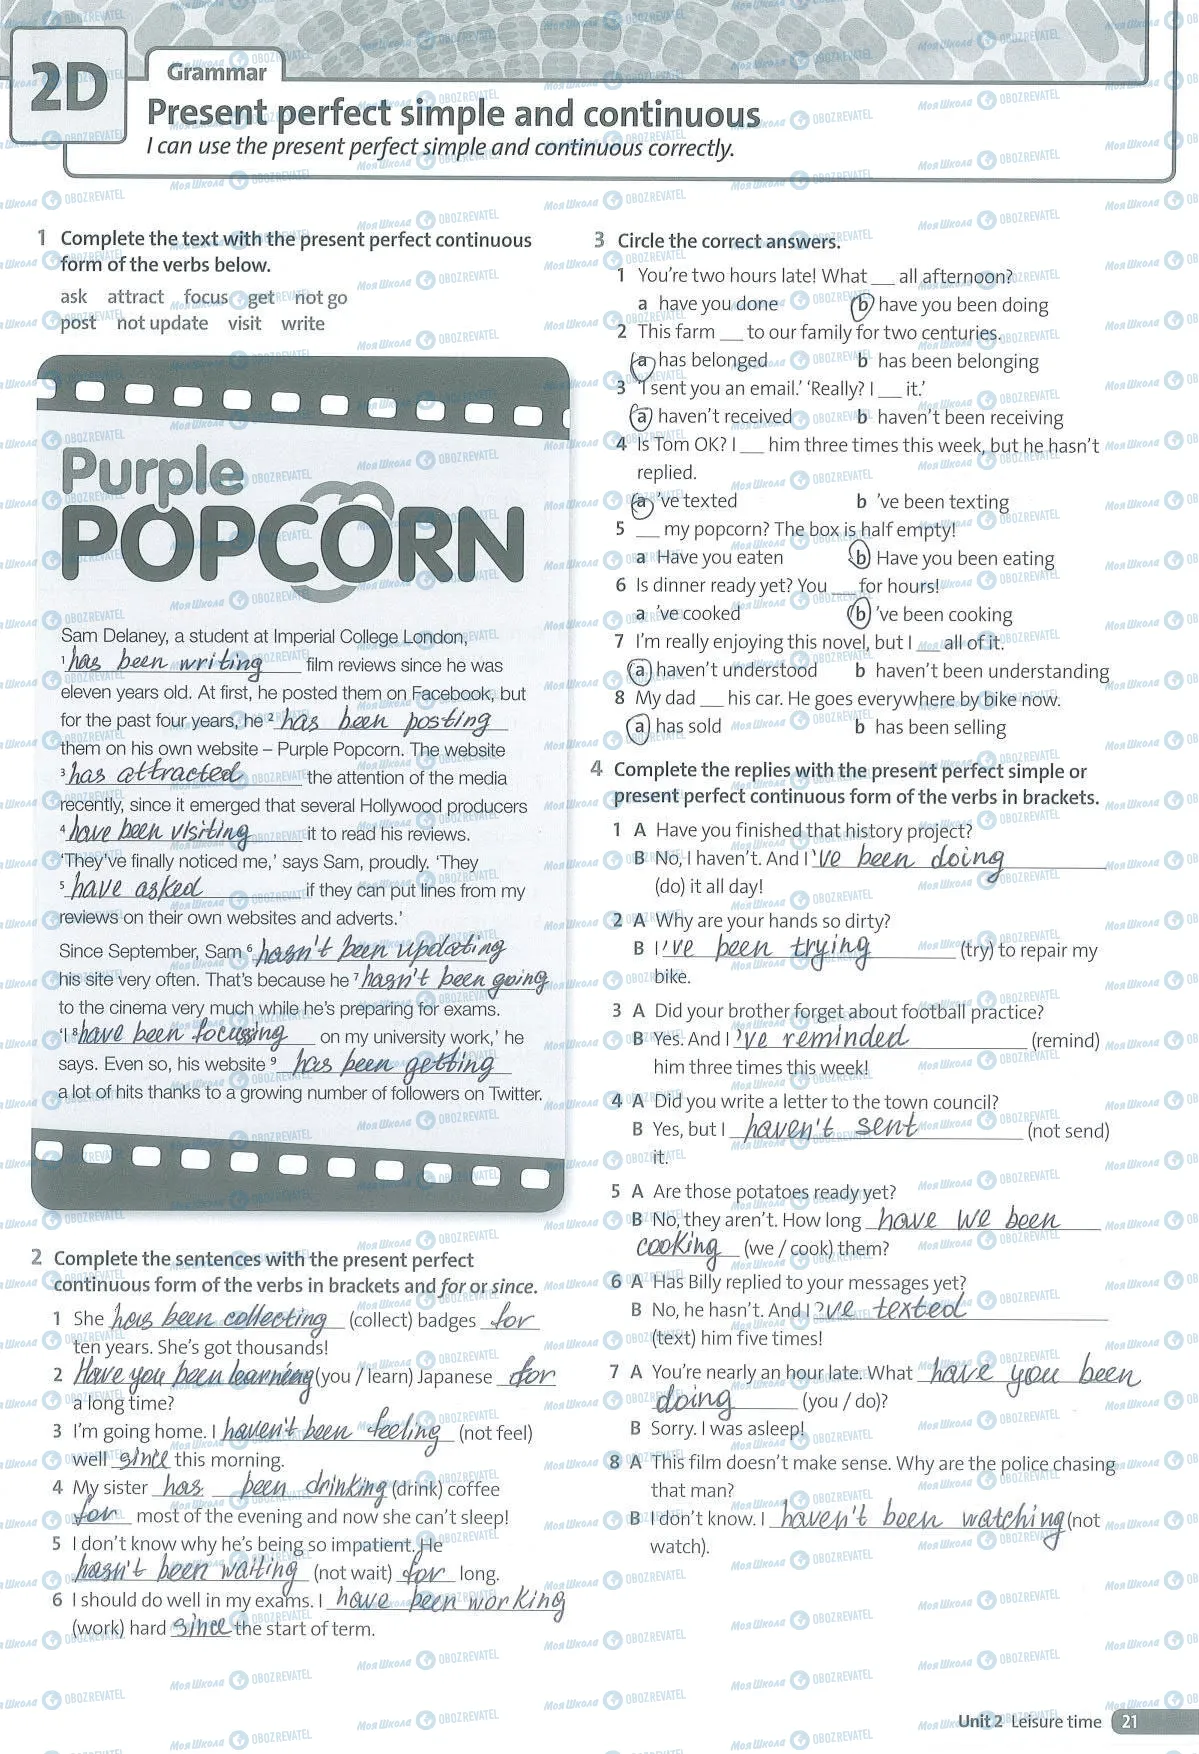 2D
Grammar
Present perfect simple and continuous
I can use the present perfect simple and continuous correctly.
1 Complete the text with the present perfect continuous
form of the verbs below.
ask attract focus get not go
post not update visit write
Purple
POPCORN
Sam Delaney, a student at Imperial College London,
1 has been writing film reviews since he was
eleven years old. At first, he posted them on Facebook, but
for the past four years, he 2 has been posting
them on his own website – Purple Popcorn. The website
3 has attracted the attention of the media
recently, since it emerged that several Hollywood producers
4 have been visiting it to read his reviews.
'They've finally noticed me,' says Sam, proudly. 'They
5 have asked if they can put lines from my
reviews on their own websites and adverts.'
Since September, Sam 6 hasn't been updating
his site very often. That's because he 7 hasn't been going
to the cinema very much while he's preparing for exams.
'I 8 have been focusing on my university work,' he
says. Even so, his website 9 has been getting
a lot of hits thanks to a growing number of followers on Twitter.
2 Complete the sentences with the present perfect
continuous form of the verbs in brackets and for or since.
1 She has been collecting (collect) badges for
ten years. She's got thousands!
2 Have you been learning (you / learn) Japanese for
a long time?
3 I'm going home. I haven't been feeling (not feel)
well since this morning.
4 My sister has been drinking (drink) coffee
for most of the evening and now she can't sleep!
5 I don't know why he's being so impatient. He
hasn't been waiting (not wait) for long.
6 I should do well in my exams. I have been working
(work) hard since the start of term.
3 Circle the correct answers.
1 You're two hours late! What ___ all afternoon?
a have you done b have you been doing
2 This farm ___ to our family for two centuries.
a has belonged b has been belonging
3 'I sent you an email.' 'Really? I ___ it.'
a haven't received b haven't been receiving
4 Is Tom OK? I ___ him three times this week, but he hasn't
replied.
a 've texted b 've been texting
5 ___ my popcorn? The box is half empty!
a Have you eaten b Have you been eating
6 Is dinner ready yet? You ___ for hours!
a 've cooked b 've been cooking
7 I'm really enjoying this novel, but I ___ all of it.
a haven't understood b haven't been understanding
8 My dad ___ his car. He goes everywhere by bike now.
a has sold b has been selling
4 Complete the replies with the present perfect simple or
present perfect continuous form of the verbs in brackets.
1 A Have you finished that history project?
B No, I haven't. And I 've been doing
(do) it all day!
2 A Why are your hands so dirty?
B I 've been trying (try) to repair my
bike.
3 A Did your brother forget about football practice?
B Yes. And I 've reminded (remind)
him three times this week!
4 A Did you write a letter to the town council?
B Yes, but I haven't sent (not send)
it.
5 A Are those potatoes ready yet?
B No, they aren't. How long have we been
cooking (we / cook) them?
6 A Has Billy replied to your messages yet?
B No, he hasn't. And I 've texted
(text) him five times!
7 A You're nearly an hour late. What have you been
doing (you / do)?
B Sorry. I was asleep!
8 A This film doesn't make sense. Why are the police chasing
that man?
B I don't know. I haven't been watching (not
watch).
Unit 2 Leisure time 21
Моя Школа OBOZREVATEL